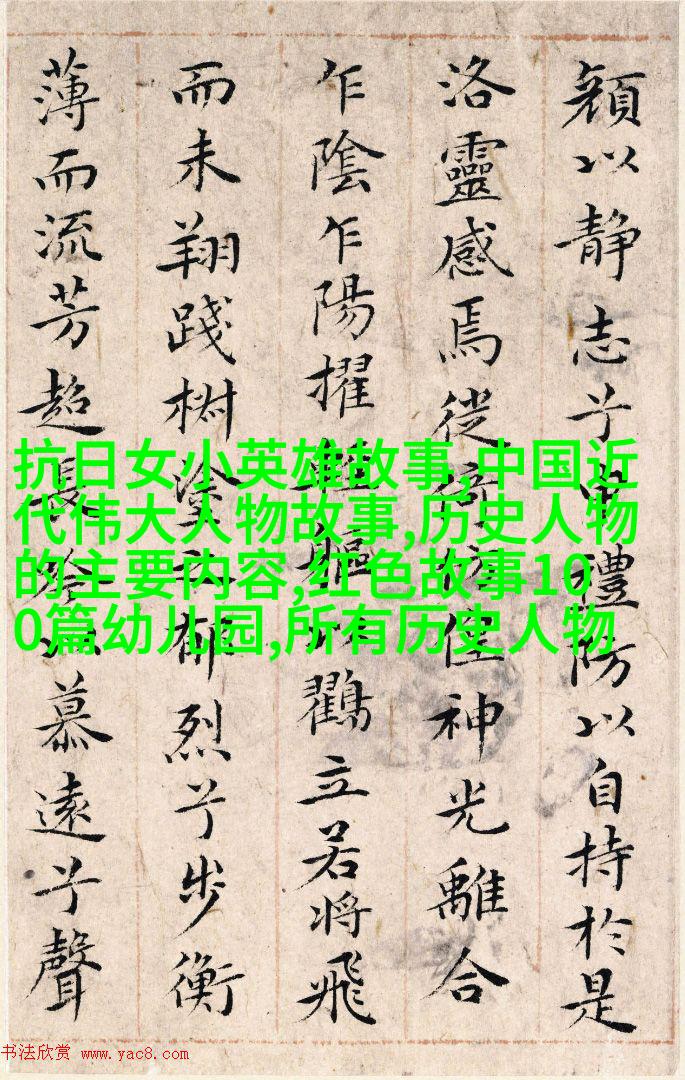 顏以靜志兮申禮防以自持於是
洛靈感焉徙倚彷徨神光離合
乍陰乍陽擢輕軀以鶴立若將飛
而未翔踐椒塗之郁烈兮步衡
薄而流芳超長吟以慕遠兮聲
抗日女小英雄故事,中国近
代伟大人物故事,历史人物
的主要内容,红色故事10
0篇幼儿园,所有历史人物
书法欣赏 www.yac8.com